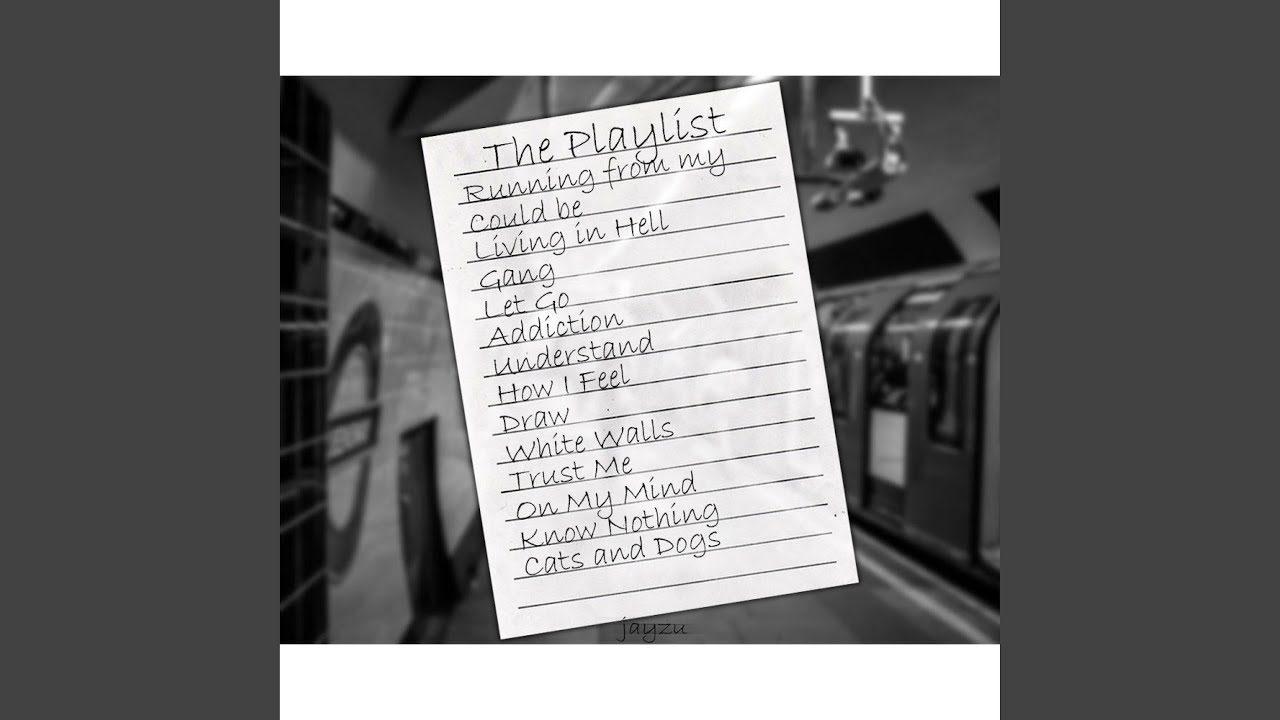 The Playlist
Running from my
Could be
Living in Hell
Gang
Let Go
Addiction
Understand
How I Feel
Draw
White Walls
Trust Me
On My Mind
Know Nothing
Cats and Dogs
jayzu